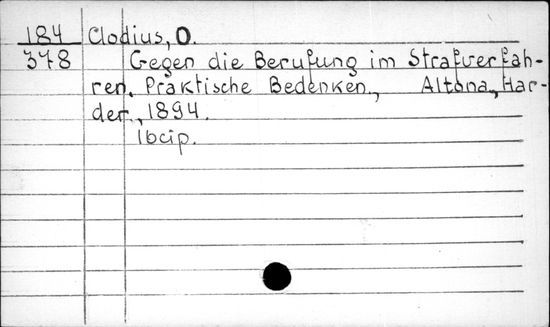 184 Clodius, O.
378 Gegen die Berufung im Strafverfah-
ren. Praktische Bedenken., Altona, Har-
der., 1894.
16cip.